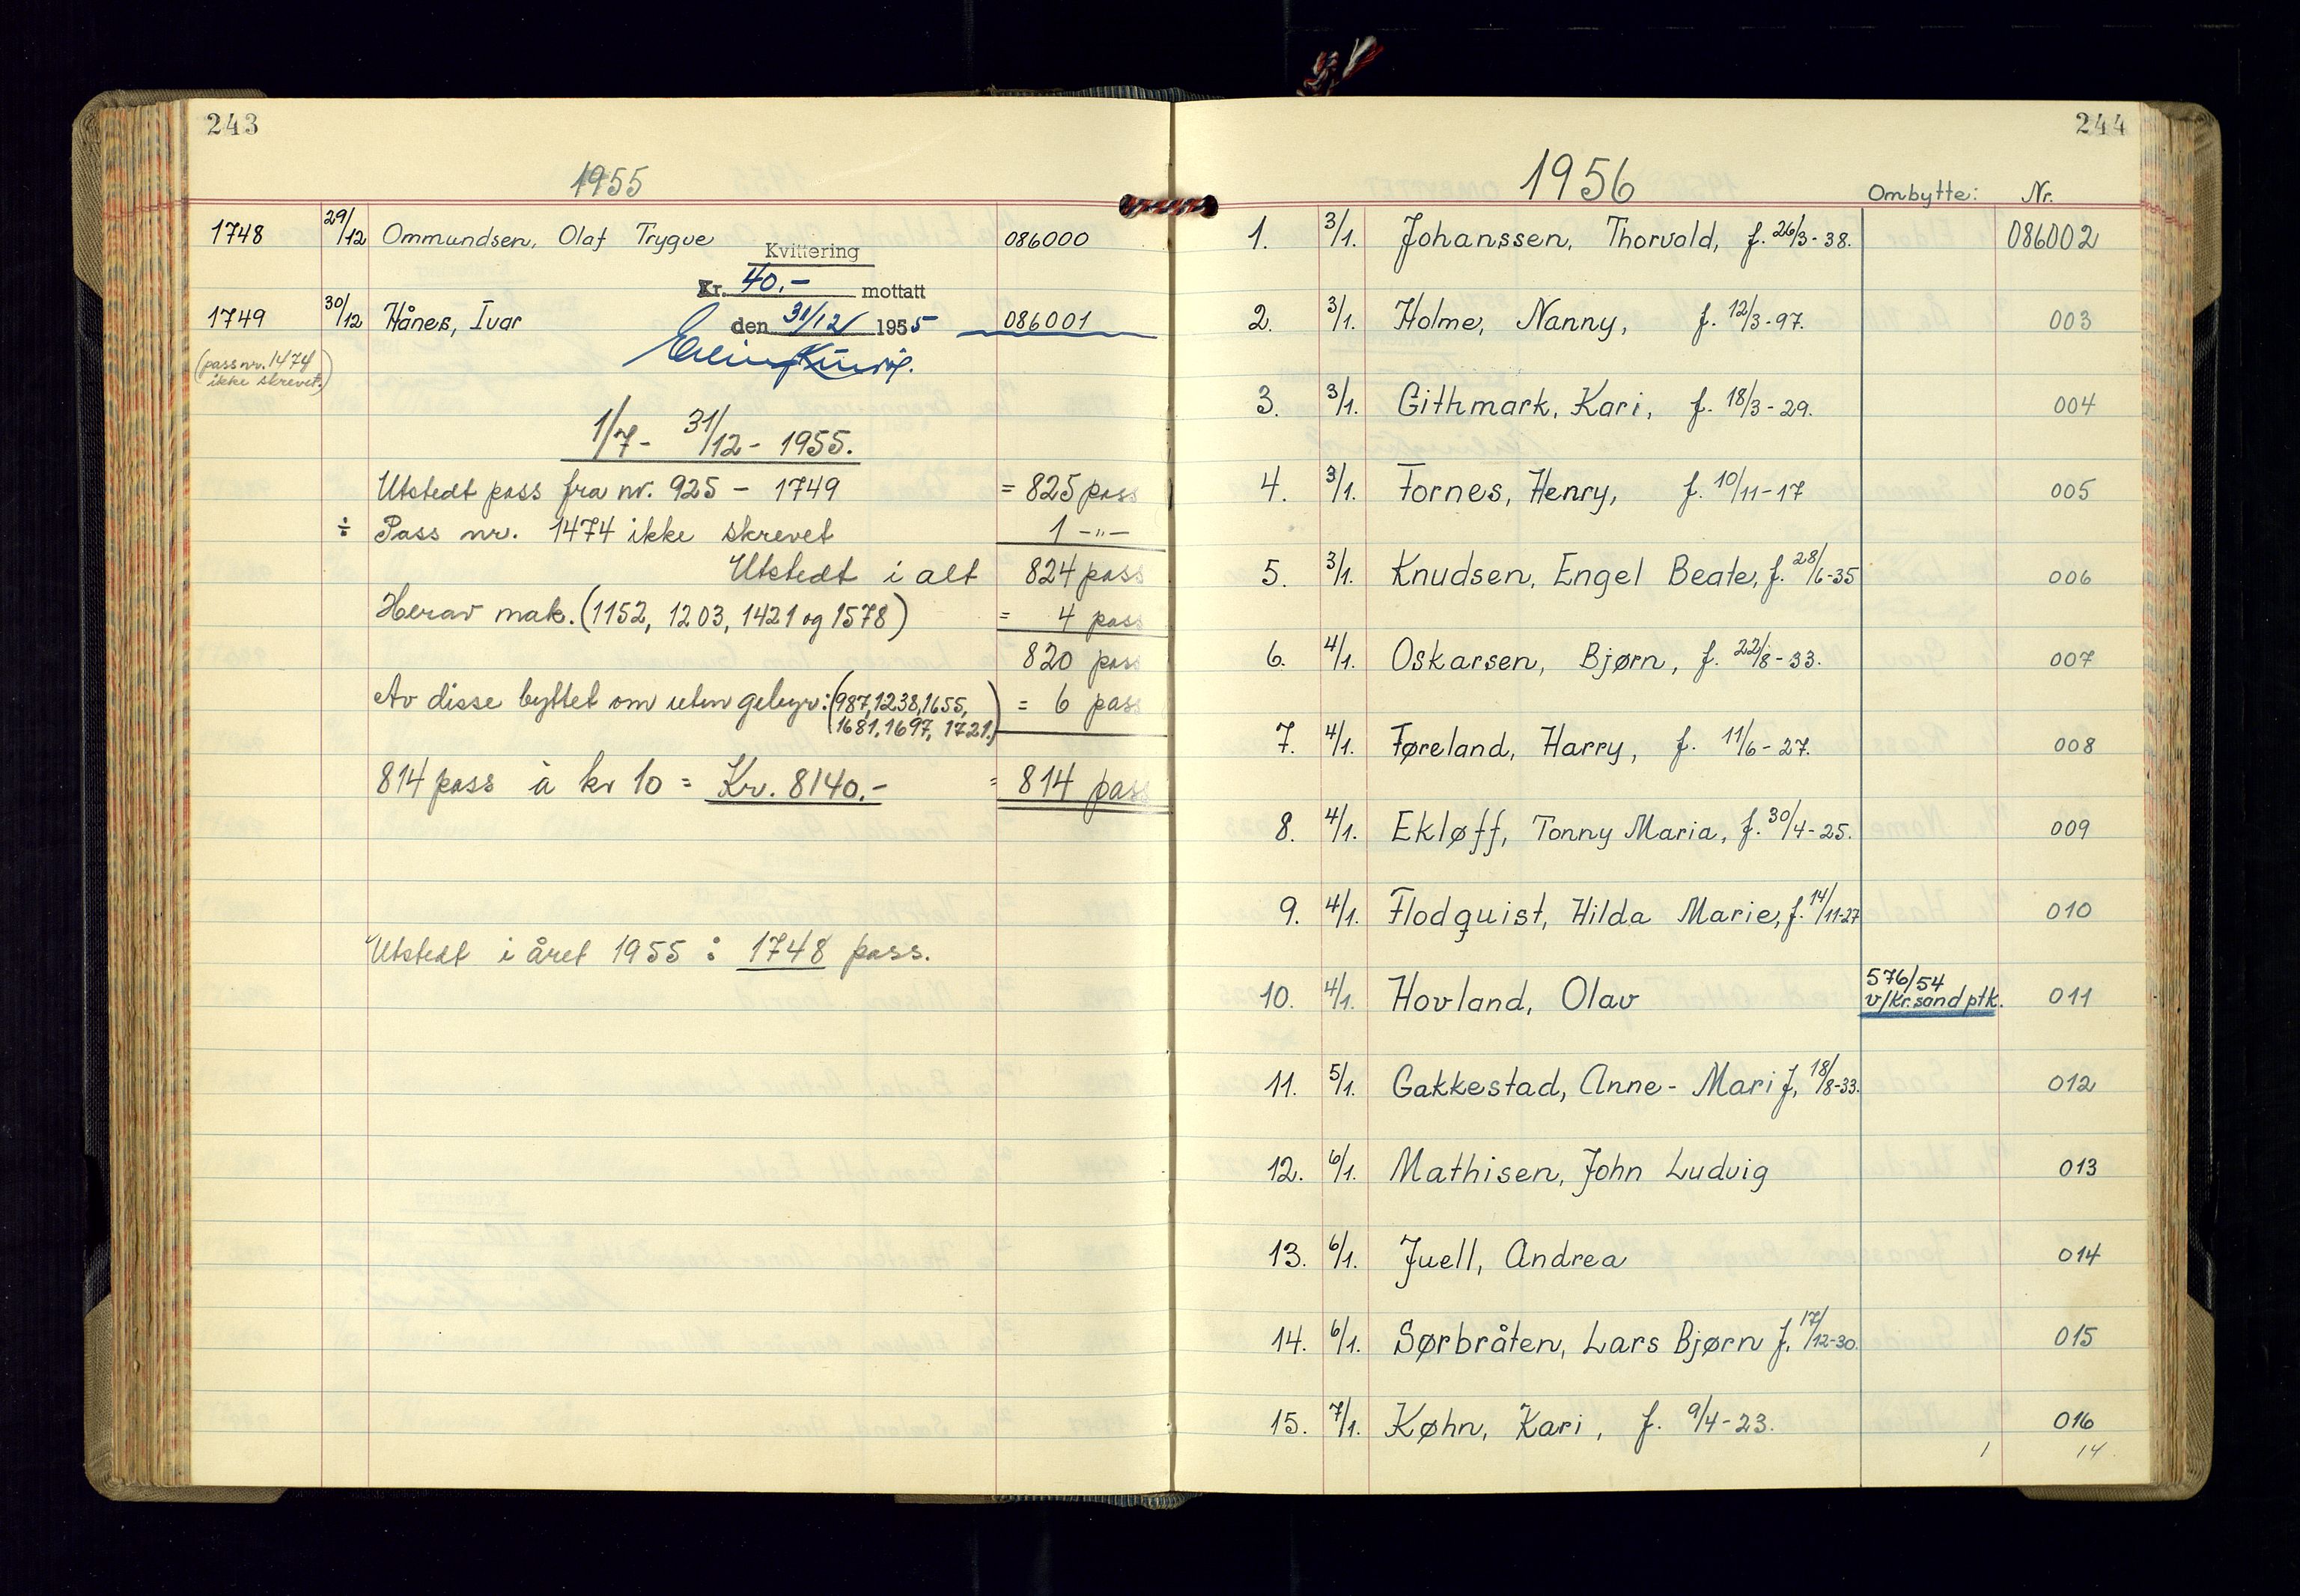 243
1955
1748 29/12 Ommundsen, Olaf Trygve 086000
Kvittering
Kr. 40.- mottatt
1749 30/12 Hånes, Ivar den 31/12 1955 086001
(pass nr. 1474
ikke skrevet.)
1/7 - 31/12 - 1955.
Utstedt pass fra nr. 925 - 1749 = 825 pass
÷ Pass nr. 1474 ikke skrevet 1 -"-
Utstedt i alt 824 pass
Herav mak. (1152, 1203, 1421 og 1578) = 4 pass
820 pass
Av disse byttet om uten gebyr: (987, 1238, 1655, = 6 pass
1681, 1697, 1721.)
814 pass à kr 10 = Kr. 8140.- = 814 pass
Utstedt i året 1955 : 1748 pass.
244
1956 Ombytte: Nr.
1. 3/1. Johanssen, Thorvald, f. 26/3-38. 086002
2. 3/1. Holme, Nanny, f. 12/3-97. 003
3. 3/1. Githmark, Kari, f. 18/3-29. 004
4. 3/1. Fornes, Henry, f. 10/11-17 005
5. 3/1. Knudsen, Engel Beate, f. 28/6-35 006
6. 4/1. Oskarsen, Bjørn, f. 22/8-33. 007
7. 4/1. Føreland, Harry, f. 11/6-27. 008
8. 4/1. Ekløff, Tonny Maria, f. 30/4-25. 009
9. 4/1. Flodquist, Hilda Marie, f. 14/11-27 010
10. 4/1. Hovland, Olav 576/54 v/Kr.sand ptk. 011
11. 5/1. Gakkestad, Anne-Mari f, 18/8-33. 012
12. 6/1. Mathisen, John Ludvig 013
13. 6/1. Juell, Andrea 014
14. 6/1. Sørbråten, Lars Bjørn f. 17/12-30. 015
15. 7/1. Køhn, Kari, f. 9/4-23. 016
1 14